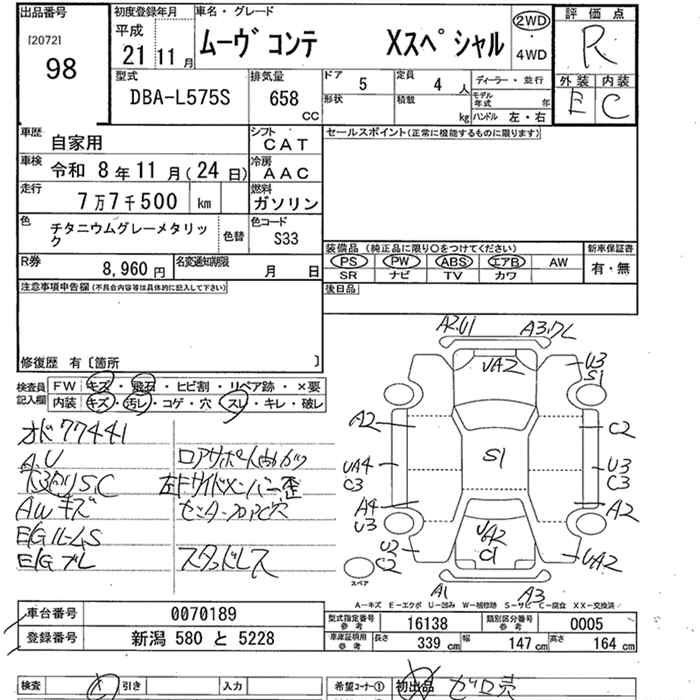 出品番号
[2072]
98
初度登録年月
平成
21 11月
車名・グレード
ムーヴ コンテ Xスペシャル
2WD
・
4WD
評価点
R
外装 内装
E C
型式
DBA-L575S
排気量
658
CC
ドア 5
形状
定員 4 人
積載 kg
ディーラー・並行
モデル年式 年
ハンドル 左・右
車歴 自家用
シフト CAT
車検 令和 8年 11月(24日)
冷房 AAC
走行 7万7千500 km
燃料 ガソリン
色 チタニウムグレーメタリック
色替
色コード S33
R券 8,960円
名変通知期限 月 日
セールスポイント(正常に機能するものに限ります)
装備品 (純正品に限り○をつけてください)
PS PW ABS エアB AW
SR ナビ TV カワ
新車保証書
有・無
後日品
注意事項申告欄(不具合内容等は具体的に記入して下さい)
修復歴 有〔箇所 〕
検査員記入欄
FW キズ・飛石・ヒビ割・リペア跡・×要
内装 キズ・汚レ・コゲ・穴・スレ・キレ・破レ
オド77441
A.U
AWキズ
E/Gルーム S
E/Gブレ
ロアサポート曲ガリ
左F サイドメンバー歪
センターフロアC穴
スタッドレス
A2.U1 A3.ワレ
UA2
U3
S1
A2
C2
S1
UA4
C3
U3
C3
A4
U3
A2
UA2
C1
U2
C2
UA2
A1 A3
スペア
A-キズ E-エクボ U-凹み W-補修跡 S-サビ C-腐食 XX-交換済
車台番号 0070189
登録番号 新潟 580 と 5228
型式指定番号 参考 16138
類別区分番号 参考 0005
車庫証明用 参考 長さ 339 cm 幅 147 cm 高さ 164 cm
検査
引き
入力
希望コーナー①
初出品
ゼロ売